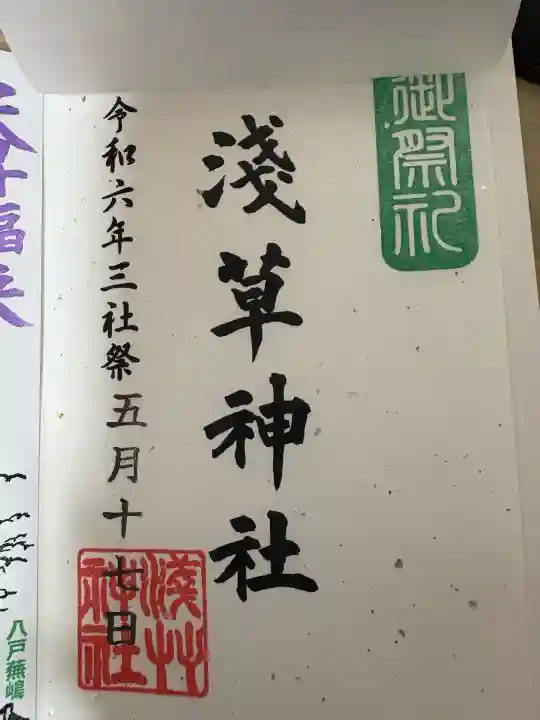 御祭礼
淺草神社
令和六年三社祭五月十七日
淺草神社
八戸蕪嶋